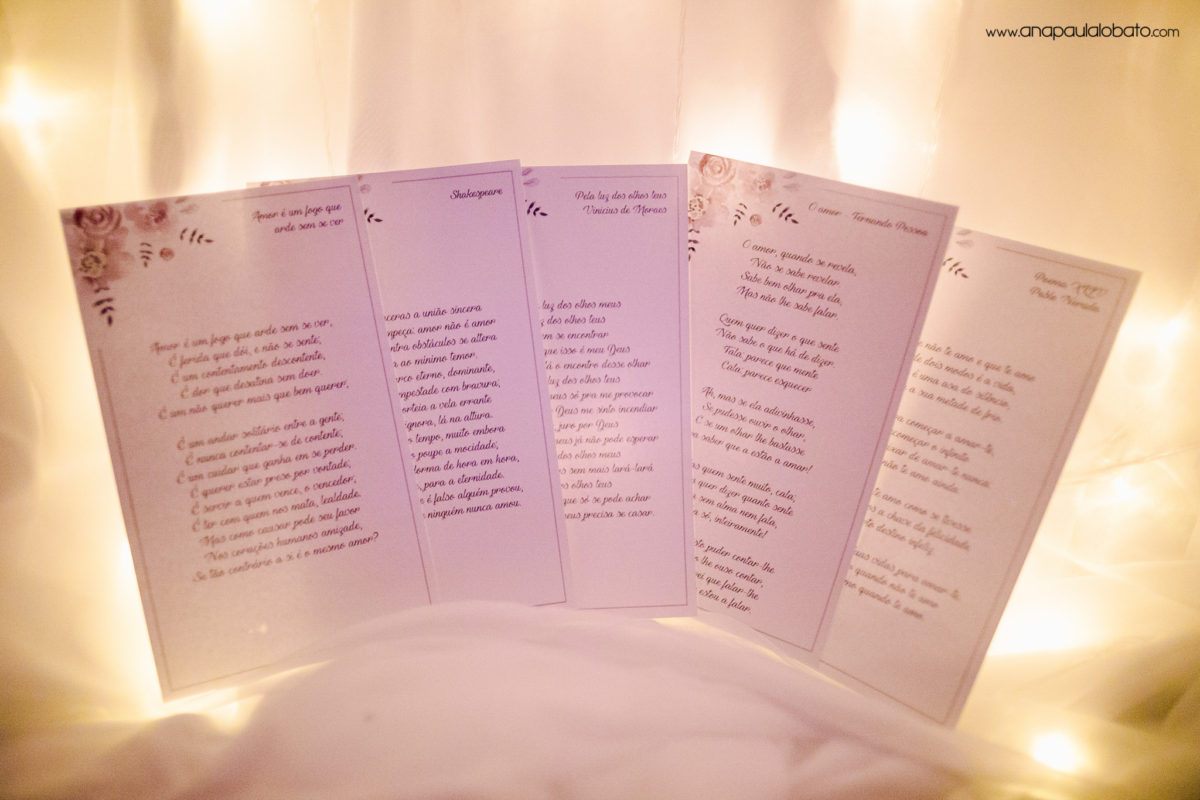 www.anapaulalobato.com
Amor é um fogo que
arde sem se ver
Amor é um fogo que arde sem se ver,
É ferida que dói, e não se sente;
É um contentamento descontente,
É dor que desatina sem doer.
É um não querer mais que bem querer,
É um andar solitário entre a gente;
É nunca contentar-se de contente;
É um cuidar que ganha em se perder.
É querer estar preso por vontade;
É servir a quem vence, o vencedor;
É ter com quem nos mata, lealdade.
Mas como causar pode seu favor
Nos corações humanos amizade,
Se tão contrário a si é o mesmo amor?
Shakespeare
ceras a união sincera
mpeça: amor não é amor
ntra obstáculos se altera
a ao mínimo temor.
arco eterno, dominante,
mpestade com bravura;
norteia a vela errante
ignora, lá na altura.
o tempo, muito embora
poupe a mocidade;
forma de hora em hora,
, para a eternidade.
o é falso alguém provou,
ninguém nunca amou.
Pela luz dos olhos teus
Vinicius de Moraes
luz dos olhos meus
z dos olhos teus
em se encontrar
que isso é meu Deus
á o encontro desse olhar
luz dos olhos teus
meus só pra me provocar
Deus me sinto incendiar
juro por Deus
meus já não pode esperar
dos olhos meus
s sem mais lará-lará
s olhos teus
que só se pode achar
meus precisa se casar.
O amor - Fernando Pessoa
O amor, quando se revela,
Não se sabe revelar.
Sabe bem olhar pra ela,
Mas não lhe sabe falar.
Quem quer dizer o que sente
Não sabe o que há de dizer.
Fala, parece que mente
Cala, parece esquecer
Ah, mas se ela adivinhasse,
Se pudesse ouvir o olhar,
E se um olhar lhe bastasse
a saber que a estão a amar!
s quem sente muito, cala;
quer dizer quanto sente
sem alma nem fala,
a só, inteiramente!
sto puder contar-lhe
o lhe ouso contar,
ei que falar-lhe
estou a falar.
Poema
Pablo Neruda
não te amo e que te amo
de dois modos é a vida,
é uma asa do silêncio,
a sua metade de frio.
a começar a amar-te,
começar o infinito
ixar de amar-te nunca
não te amo ainda.
te amo como se tivesse
s a chave da felicidade,
destino infeliz
uas vidas para amar-te.
quando não te amo
quando te amo.